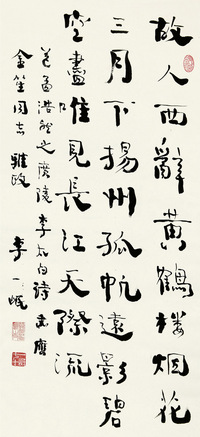 故人西辭黄鶴楼烟花
三月下揚州孤帆遠影碧
空盡唯見長江天際流
送孟浩然之廣陵李太白诗書應
金笙同志雅政
李一氓